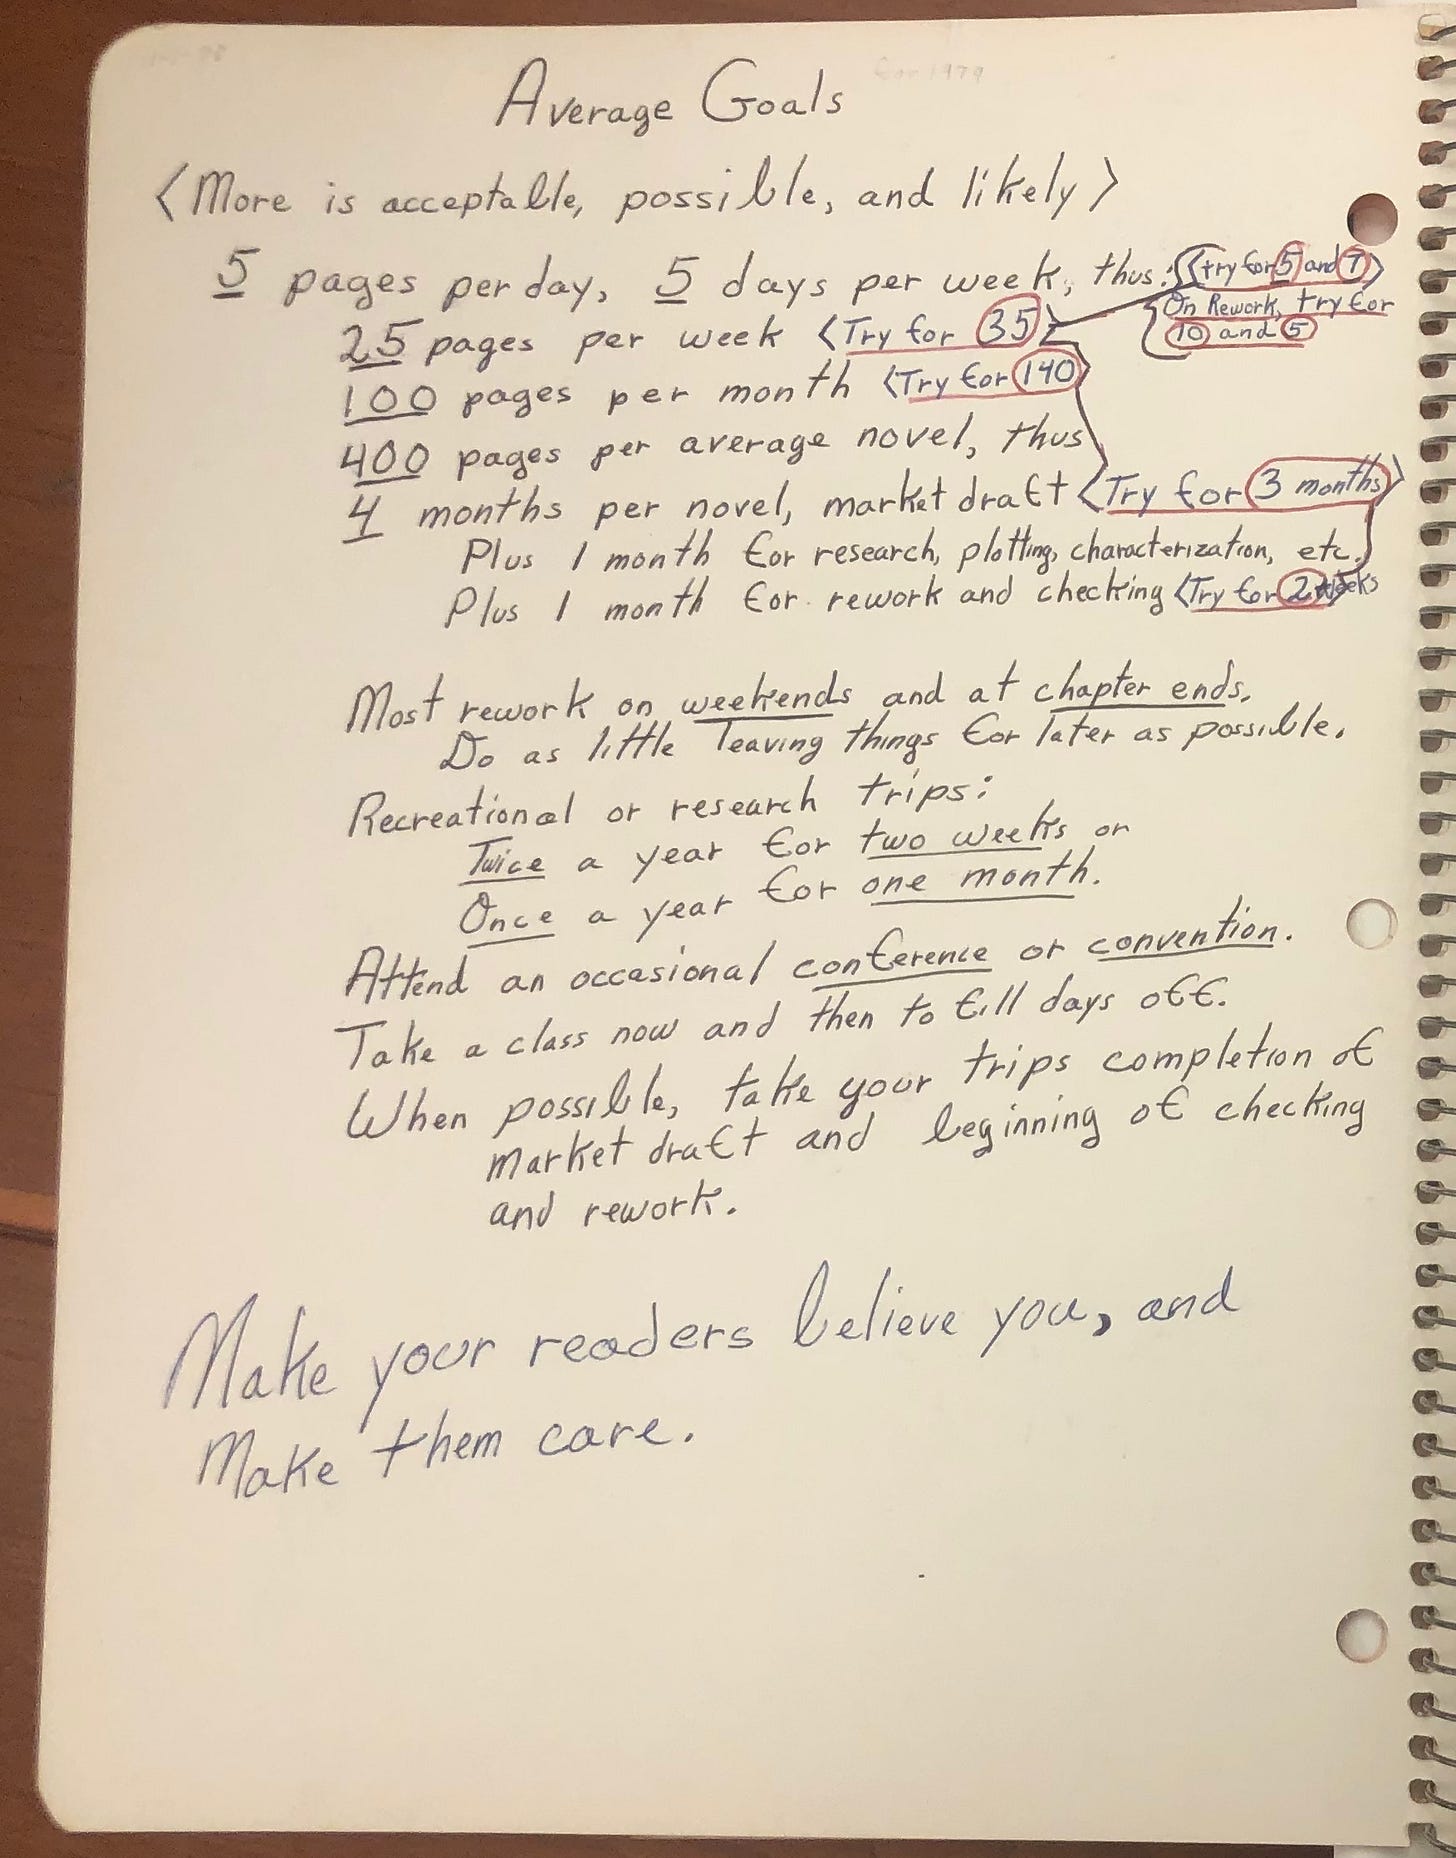 for 1979
Average Goals
<More is acceptable, possible, and likely>
5 pages per day, 5 days per week, thus: <try for 5 and 7>
On Rework, try for
10 and 5
25 pages per week <Try for 35>
100 pages per month <Try for 140>
400 pages per average novel, thus
4 months per novel, market draft <Try for 3 months>
Plus 1 month for research, plotting, characterization, etc.
Plus 1 month for rework and checking <Try for 2 weeks
Most rework on weekends and at chapter ends.
Do as little leaving things for later as possible.
Recreational or research trips:
Twice a year for two weeks or
Once a year for one month.
Attend an occasional conference or convention.
Take a class now and then to fill days off.
When possible, take your trips completion of
market draft and beginning of checking
and rework.
Make your readers believe you, and
Make them care.